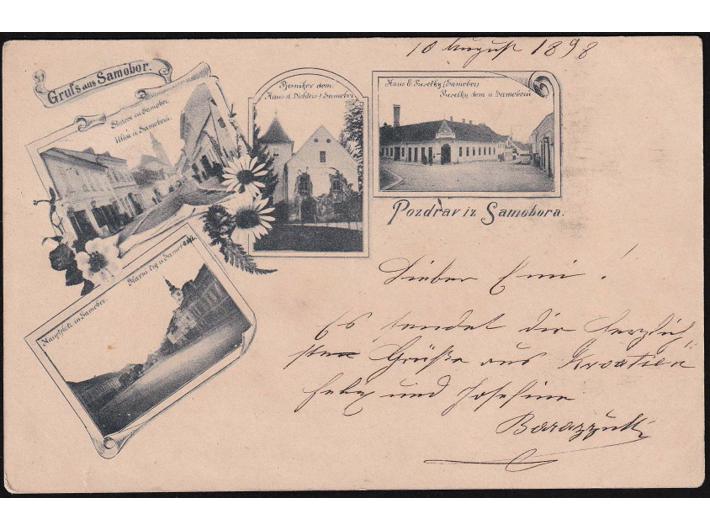 10 August 1898
Gruss aus Samobor.
Strasse in Samobor.
Ulica u Samoboru.
Pjesnikov dom.
Haus d. Dichters i. Samobor.
Haus E. Presečky (Samobor)
Presečky dom u Samoboru
Pozdrav iz Samobora.
Hauptplatz in Samobor.
Glavni trg u Samoboru
Lieber Emi!
Es sendet die herzlich
sten Grüße aus Kroatien
und Josefine